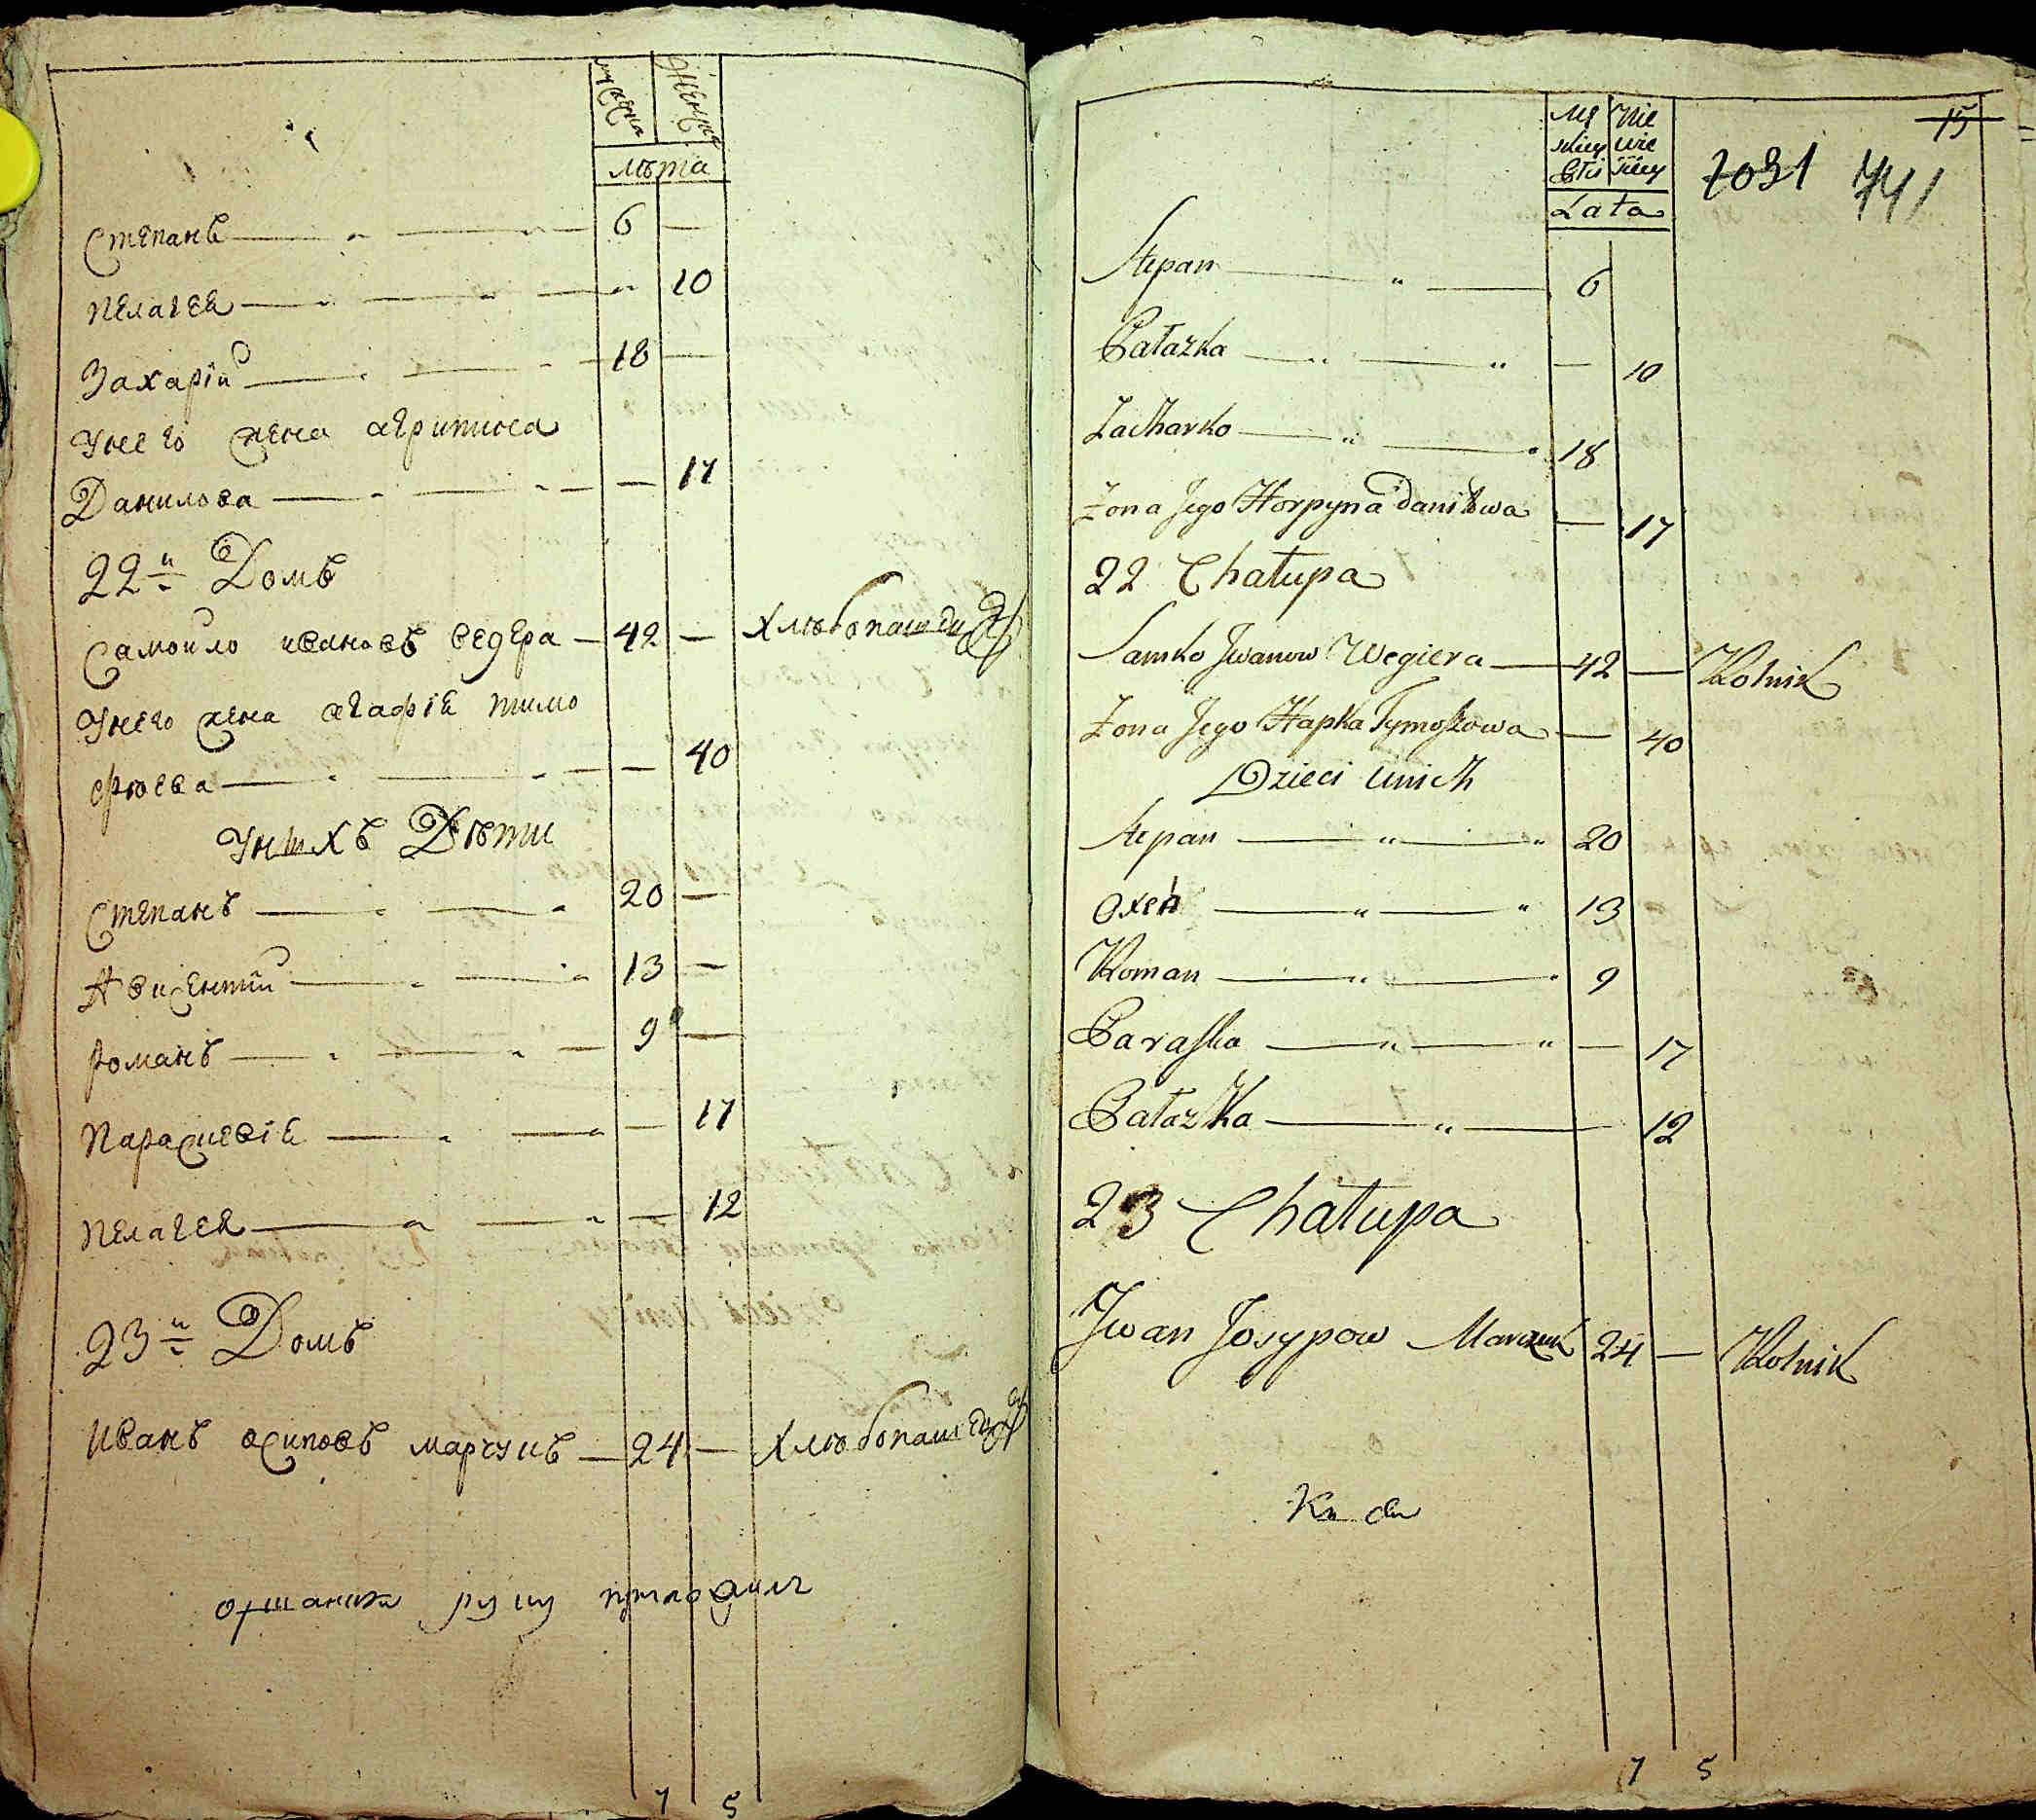 мужеска
женска
лѣта
Степанъ — „ — „ — 6 —
Пелагея — „ — „ — „ 10
Захарій — „ — „ 18 —
Унего жена агрипина
Данилова — „ — „ — — 17
22й Домъ
Самойло ивановъ ведера — 42 — хлѣбопашецъ
Унего жена агафія тимо
фѣева — „ — „ — — 40
Унихъ Дѣти
Степанъ — „ — „ 20 —
Авксентій — „ — „ 13 —
Романъ — „ — „ — 9 —
Параскевія — „ — „ — 17
Пелагея — „ — „ — 12
23й Домъ
Иванъ осиповъ марчукъ — 24 — хлѣбопашецъ
руку приложилъ
7 5
15
Mę
skiey
Płci
Nie
wie
ściey
Lata
7031 741
Stepan — „ — 6
Pałazka — „ — „ — 10
Zacharko — „ — „ 18
Żona Jego Horpyna Daniłowa — 17
22 Chałupa
Samko Jwanow Wegiera — 42 — Rolnik
Żona Jego Hapka Tymoszowa — 40
Dzieci unich
Stepan — „ — „ 20
Oxeń — „ — „ 13
Roman — „ — „ 9
Paraska — „ — „ — 17
Pałazka — „ — 12
23 Chałupa
Jwan Josypow Marczuk 24 — Rolnik
7 5